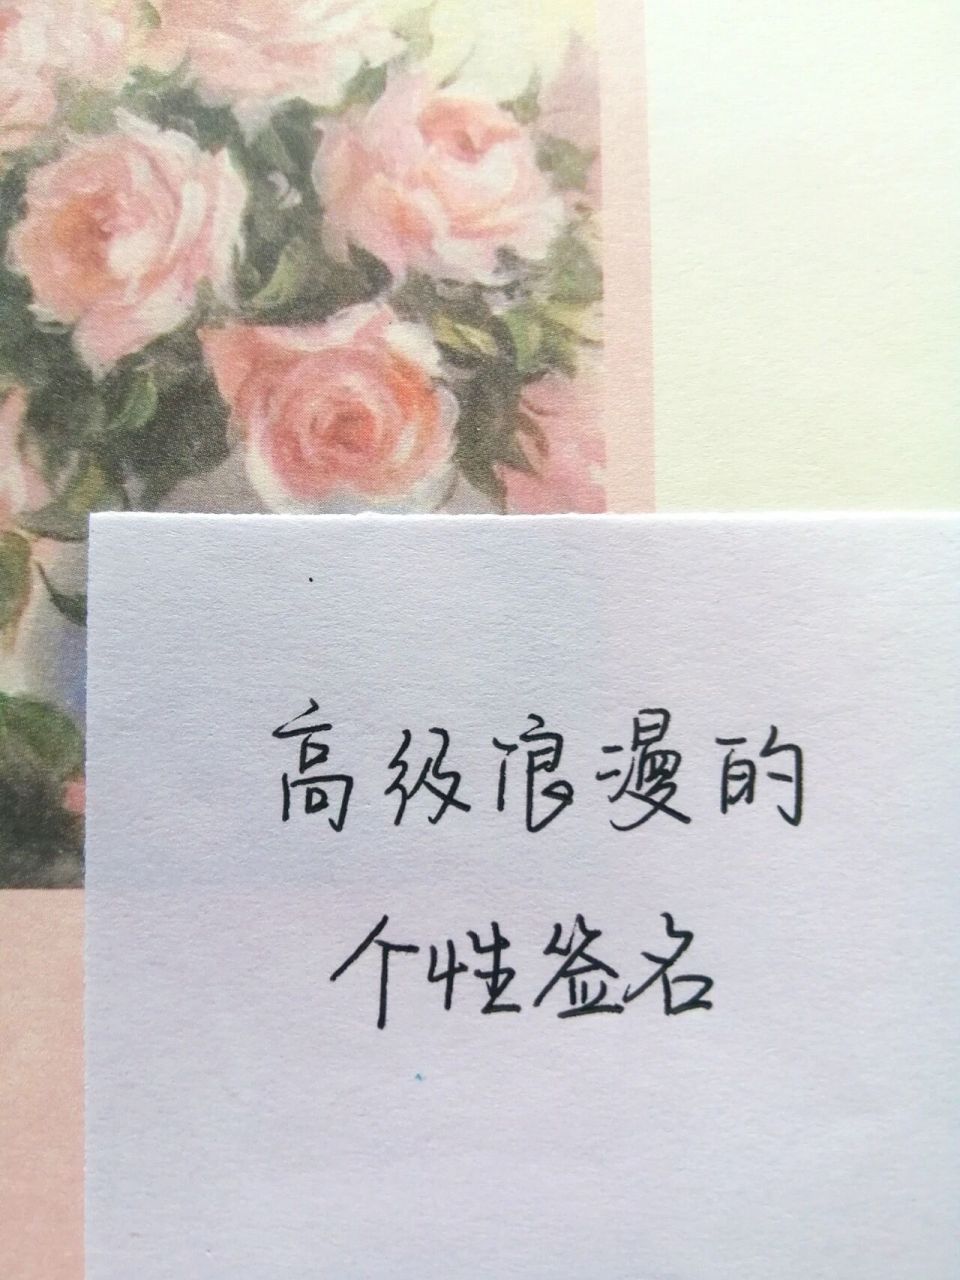 高级浪漫的
个性签名